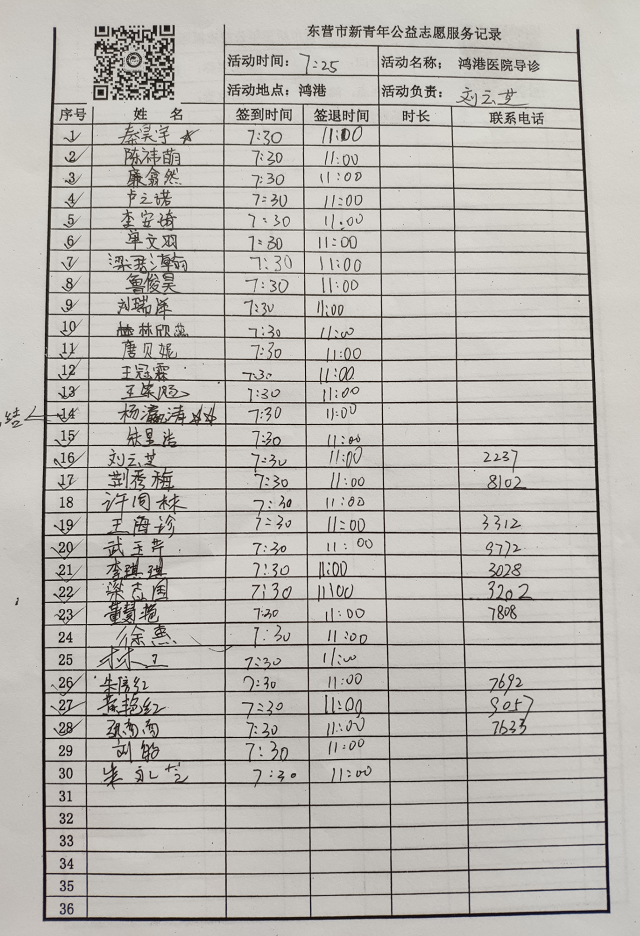 东营市新青年公益志愿服务记录
活动时间：7:25 活动名称：鸿港医院导诊
活动地点：鸿港 活动负责：刘云芝
序号 姓 名 签到时间 签退时间 时长 联系电话
1 秦昊宇 7:30 11:00
2 陈沛萌 7:30 11:00
3 廉翕然 7:30 11:00
4 卢之诺 7:30 11:00
5 李安琦 7:30 11:00
6 单文羽 7:30 11:00
7 7:30 11:00
8 鲁俊昊 7:30 11:00
9 刘瑞泽 7:30 11:00
10 林欣蕊 7:30 11:00
11 唐贝妮 7:30 11:00
12 王冠霖 7:30 11:00
13 7:30 11:00
14 杨瀛涛 7:30 11:00
15 7:30 11:00
16 刘云芝 7:30 11:00 2237
17 荆秀梅 7:30 11:00 8102
18 许同林 7:30 11:00
19 王海珍 7:30 11:00 3312
20 武玉芹 7:30 11:00 9772
21 李琪琪 7:30 11:00 3028
22 梁志国 7:30 11:00 3202
23 董慧艳 7:30 11:00 7808
24 徐惠 7:30 11:00
25 7:30 11:00
26 7:30 11:00 7692
27 黄艳红 7:30 11:00 9057
28 7:30 11:00 7633
29 7:30 11:00
30 7:30 11:00
31
32
33
34
35
36